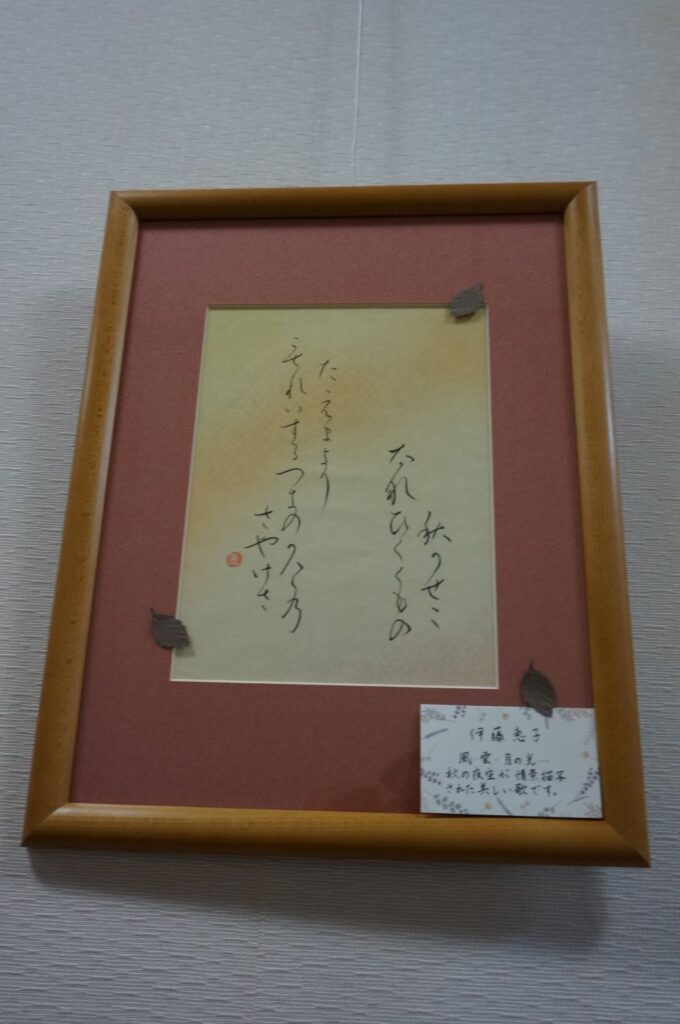 秋かせに
たなひくくもの
たえまより
もれいつるつきのかけ乃
さやけさ
伊藤恵子
風・雲・月の光…
秋の夜空が情景描写
された美しい歌です。